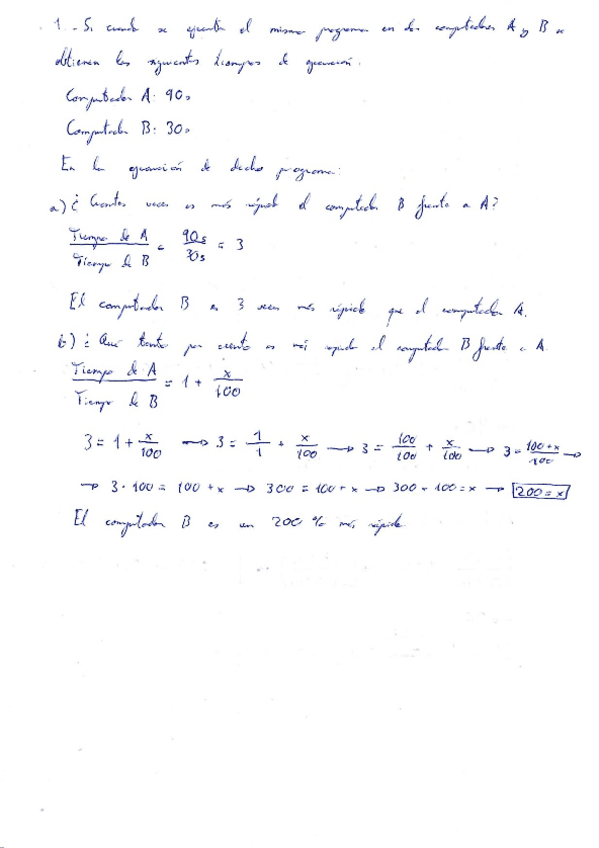 1.- Si cuando se ejecuta el mismo programa en dos computadores A y B se
obtienen los siguientes tiempos de ejecución:
Computador A: 90s
Computador B: 30s
En la ejecución de dicho programa:
a) ¿Cuántas veces es más rápido el computador B frente a A?
Tiempo de A / Tiempo de B = 90s / 30s = 3
El computador B es 3 veces más rápido que el computador A.
b) ¿Qué tanto por ciento es más rápido el computador B frente a A.
Tiempo de A / Tiempo de B = 1 + x/100
3 = 1 + x/100 → 3 = 1/1 + x/100 → 3 = 100/100 + x/100 → 3 = 100+x/100 →
→ 3·100 = 100+x → 300 = 100+x → 300-100=x → 200=x
El computador B es un 200 % más rápido